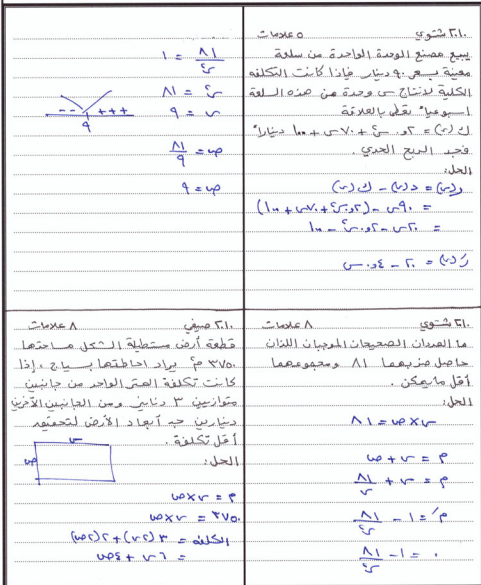 ٢٠١٠ شتوي ٥ علامات
يبيع مصنع الوحدة الواحدة من سلعة
معينة بسعر ٩٠ دينار فإذا كانت التكلفه
الكلية لانتاج س وحدة من هذه السلعة
اسبوعياً تعطى بالعلاقة
ك(س) = ٢و. س٢ + ٧٠س + ١٠٠ ديناراً
فجد الربح الحدي.
الحل:
ر(س) = د(س) - ك(س)
= ٩٠س - (٢و.س٢ + ٧٠س + ١٠٠)
= ٢٠س - ٢و.س٢ - ١٠٠
رَ(س) = ٢٠ - ٤و.س
٢٠١٠ شتوي ٨ علامات
ما العددان الصحيحان الموجبان اللذان
حاصل ضربهما ٨١ ومجموعهما
أقل ما يمكن.
الحل:
س×ص = ٨١
م = س + ص
م = س + ٨١/س
مَ = ١ - ٨١/س٢
٠ = ١ - ٨١/س٢
٨١/س٢ = ١
س٢ = ٨١
س = ٩
-- +++
٩
ص = ٨١/٩
ص = ٩
٢٠١٠ صيفي ٨ علامات
قطعة أرض مستطيلة الشكل مساحتها
٣٧٥٠ م٢ يراد احاطتها بسياج، إذا
كانت تكلفة المتر الواحد من جانبين
متوازيين ٣ دنانير ومن الجانبين الآخرين
دينارين جد أبعاد الأرض لتحقيق
أقل تكلفة.
الحل:
س
ص
م = س×ص
٣٧٥٠ = س×ص
التكلفة = ٣(٢س) + ٢(٢ص)
= ٦س + ٤ص